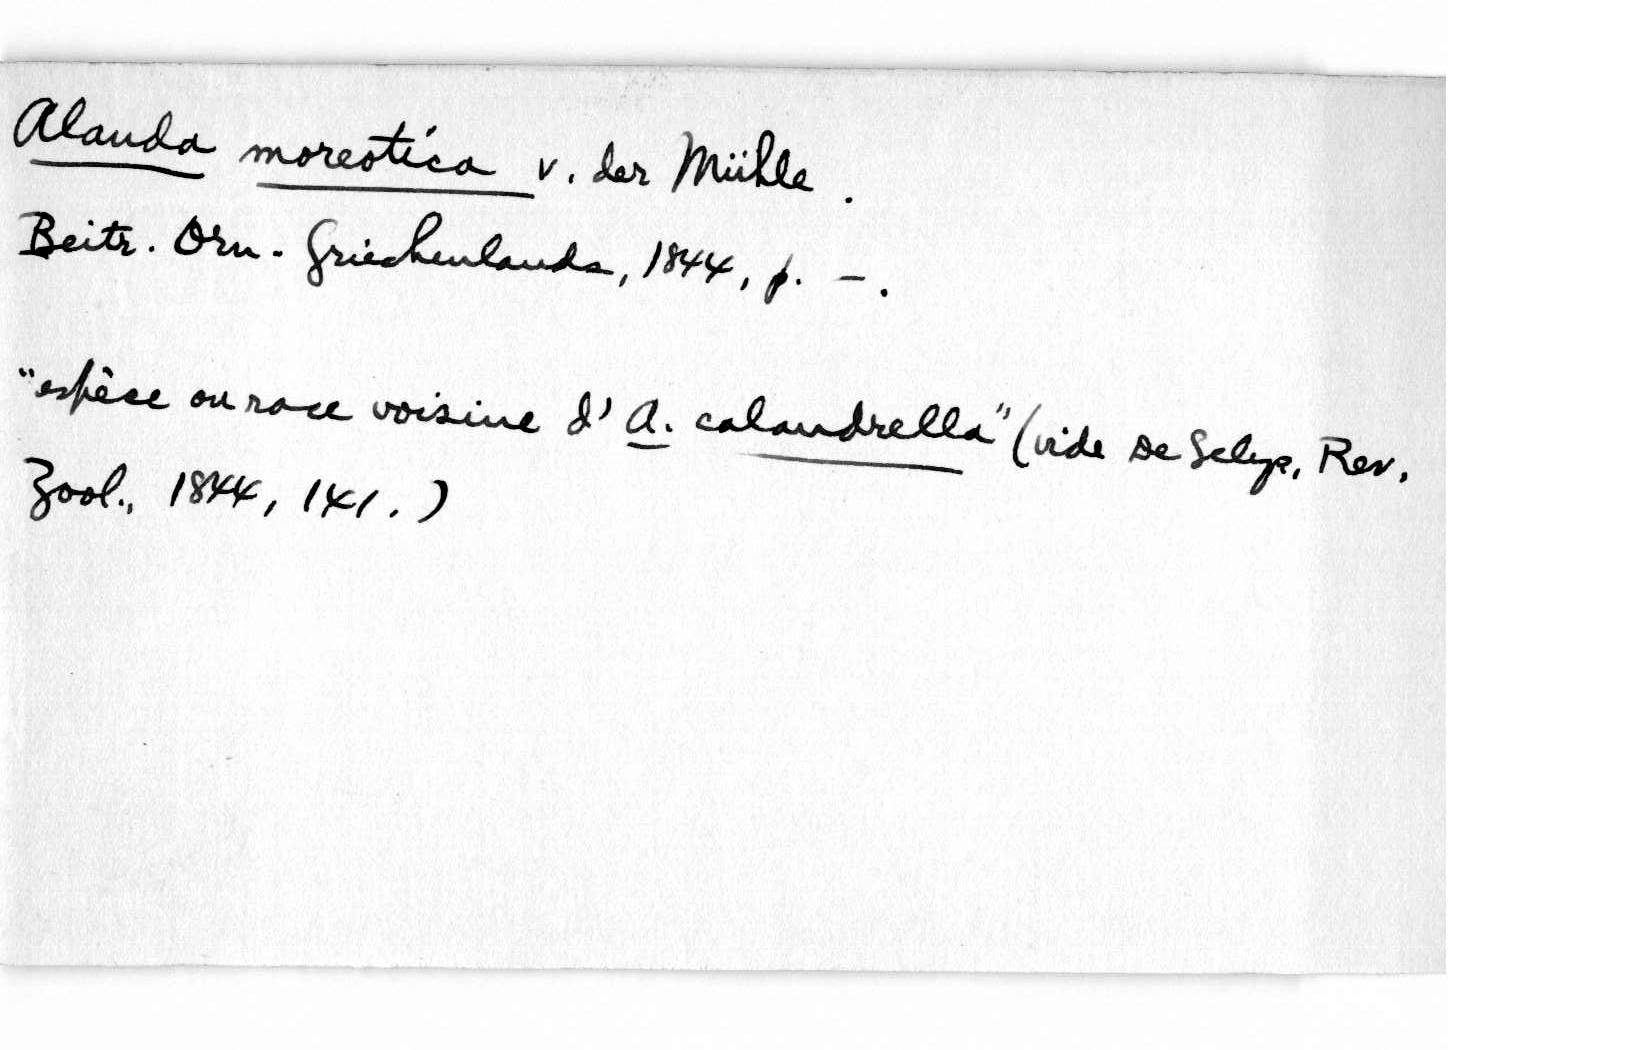 Alauda moreotica v. der Mühle.
Beitr. Orn. Griechenlands, 1844, p. –.
"espêce ou race voisine d' A. calandrella" (vide De Selys, Rev.
Zool., 1844, 141.)